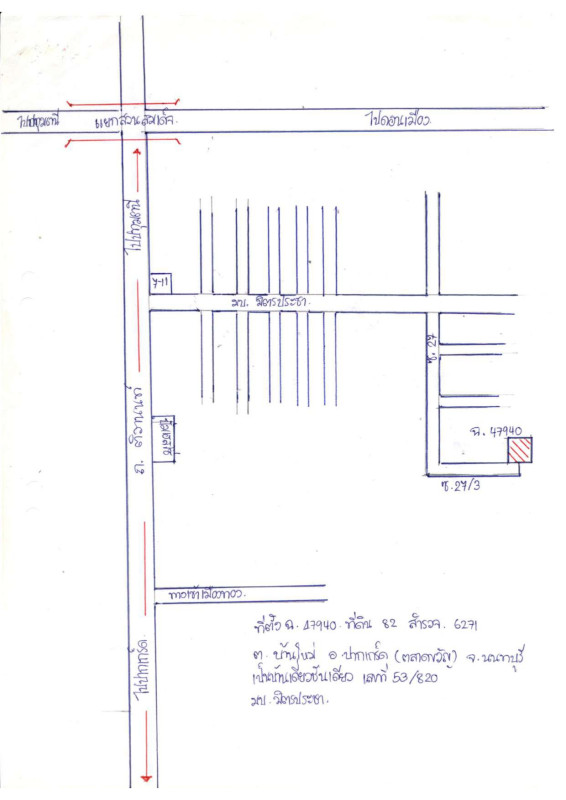 ไปปทุมธานี
แยกสวนสมเด็จ.
ไปดอนเมือง
ไปปทุมธานี
7-11
มบ. มิตรประชา.
ซ. 27
ถ. ติวานนท์
ฉ. 47940
ซ. 27/3
ทางเข้าเมืองทอง.
ไปปากเกร็ด.
ที่ตั้ง ฉ. 47940. ที่ดิน 82 สำรวจ. 6271
ต. บ้านใหม่ อ ปากเกร็ด (ตลาดขวัญ) จ.นนทบุรี
เป็นบ้านเดี่ยวชั้นเดียว เลขที่ 53/820
มบ. มิตรประชา.